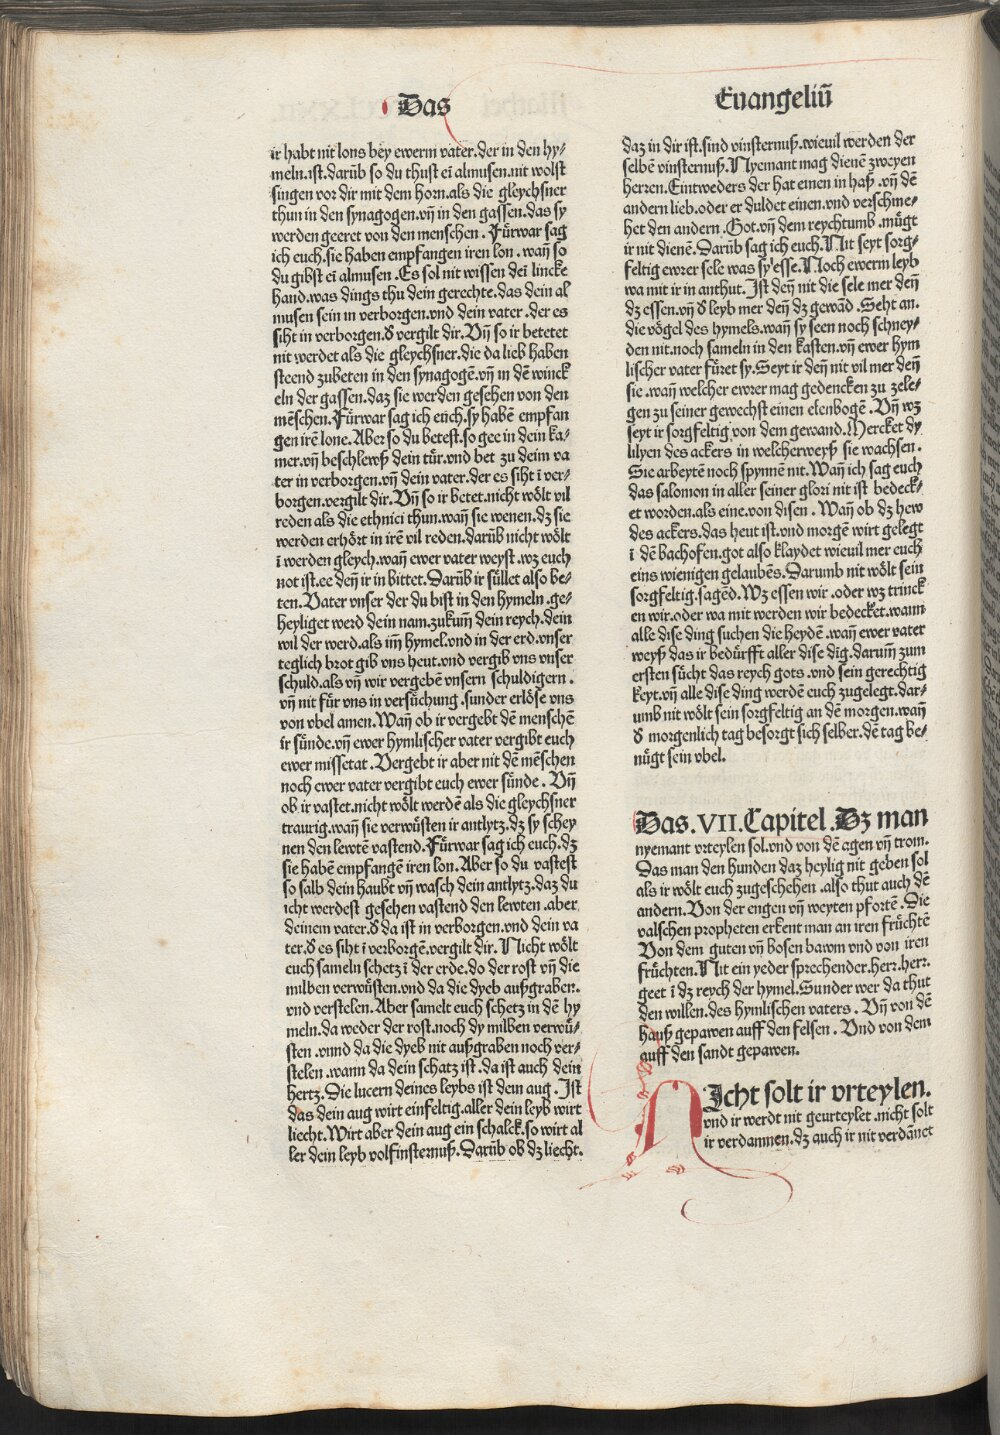 Das
Euangeliū
ir habt nit lons bey ewerm vater.der in den hy⸗
meln.ist.darūb so du thust eī almusen.nit wolst
singen vor dir mit dem horn.als die gleychsner
thun in den synagogen.vñ in den gassen.das sy
werden geeret von den menschen. Fürwar sag
ich euch.sie haben empfangen iren lon. wañ so
du gibst eī almusen. Es sol nit wissen deī lincke
hand.was dings thu dein gerechte.das dein al
musen sein in verborgen.vnd dein vater.der es
siht in verborgen.d̕ vergilt dir. Vñ so ir betetet
nit werdet als die gleychsner.die da lieb haben
steend zubeten in den synagogē.vñ in dē winck
eln der gassen.daz sie werden gesehen von den
mēschen.Fürwar sag ich euch.sy habē empfan
gen irē lone.Aber so du betest.so gee in dein ka⸗
mer.vñ beschlewß dein tür.vnd bet zu deim va
ter in verborgen.vñ dein vater.der es siht ī ver⸗
borgen.vergilt dir. Vñ so ir betet.nicht wölt vil
reden als die ethnici thun.wañ sie wenen.dz sie
werden erhört in irē vil reden.darūb nicht wölt
ī werden gleych.wañ ewer vater weyst.wz euch
not ist.ee deñ ir in bittet.Darūb ir süllet also be⸗
ten. Vater vnser der du bist in den hymeln.ge⸗
heyliget werd dein nam.zukum̄ dein reych.dein
wil der werd.als im̄ hymel.vnd in der erd.vnser
teglich brot gib vns heut.vnd vergib vns vnser
schuld.als vñ wir vergebē vnsern schuldigern.
vñ nit für vns in versüchung.sunder erlöse vns
von vbel amen.Wañ ob ir vergebt dē menschē
ir sünde.vñ ewer hymlischer vater vergibt euch
ewer missetat. Vergebt ir aber nit dē mēschen
noch ewer vater vergibt euch ewer sünde. Vñ
ob ir vastet.nicht wölt werdē als die gleychsner
traurig.wañ sie verwüsten ir antlytz.dz sy schey
nen den lewtē vastend.Fürwar sag ich euch.dz
sie habē empfangē iren lon. Aber so du vastest
so salb dein haubt vñ wasch dein antlytz.daz du
icht werdest gesehen vastend den lewten.aber
deinem vater.d̕ da ist in verborgen.vnd dein va
ter.d̕ es siht ī verborgē.vergilt dir. Nicht wölt
euch sameln schetz ī der erde.do der rost vñ die
milben verwüsten.vnd da die dyeb außgraben.
vnd verstelen.Aber samelt euch schetz in dē hy
meln.da weder der rost.noch dy milben verwü⸗
sten.vnnd da die dyeb nit außgraben noch ver⸗
stelen.wann da dein schatz ist.da ist auch dein
hertz. Die lucern deines leybs ist dein aug. Ist
das dein aug wirt einfeltig.aller dein leyb wirt
liecht.Wirt aber dein aug ein schalck.so wirt al
ler dein leyb volfinsternuß.Darūb ob dz liecht.
daz in dir ist.sind vinsternuß.wieuil werden der
selbē vinsternuß. Nyemant mag dienē zweyen
herren.Eintweders der hat einen in haß.vñ dē
andern lieb.oder er duldet einen.vnd verschme⸗
het den andern. Got.vñ dem reychtumb.mügt
ir nit dienē.Darūb sag ich euch.Nit seyt sorg⸗
feltig ewrer sele was sy esse.Noch ewerm leyb
wa mit ir in anthut.Ist deñ nit die sele mer deñ
dz essen.vñ d̕ leyb mer deñ dz gewād.Seht an.
die vögel des hymels.wañ sy seen noch schney⸗
den nit.noch sameln in den kasten.vñ ewer hym
lischer vater füret sy.Seyt ir deñ nit vil mer deñ
sie.wañ welcher ewrer mag gedencken zu zele⸗
gen zu seiner gewechst einen elenbogē. Vñ wz
seyt ir sorgfeltig von dem gewand.Mercket dy
lilyen des ackers in welcherweyß sie wachsen.
Sie arbeytē noch spynnē nit.Wañ ich sag euch
das salomon in aller seiner glori nit ist bedeck⸗
et worden.als eine.von disen. Wañ ob dz hew
des ackers.das heut ist.vnd morgē wirt gelegt
ī dē bachofen.got also klaydet wieuil mer euch
eins wienigen gelaubēs.Darumb nit wölt sein
sorgfeltig.sagēd.Wz essen wir.oder wz trinck
en wir.oder wa mit werden wir bedecket.wann
alle dise ding suchen die heydē.wañ ewer vater
weyß das ir bedürfft aller dise dīg.darum̄ zum
ersten sücht das reych gots.vnd sein gerechtig
keyt.vñ alle dise ding werdē euch zugelegt.dar⸗
umb nit wölt sein sorgfeltig an dē morgen.wañ
d̕ morgenlich tag besorgt sich selber.dē tag be⸗
nügt sein vbel.
Das.VII.Capitel.Dz man
nyemant vrteylen sol.vnd von dē agen vñ trom.
Das man den hunden daz heylig nit geben sol
als ir wölt euch zugeschehen.also thut auch dē
andern.Von der engen vñ weyten pfortē.Die
valschen propheten erkent man an iren früchtē
Von dem guten vñ bosen bawm vnd von iren
früchten.Nit ein yeder sprechender.herr.herr.
geet ī dz reych der hymel.Sunder wer da thut
den willen.des hymlischen vaters. Vñ von dē
hauß gepawen auff den felsen. Vnd von dem
auff den sandt gepawen.
NIcht solt ir vrteylen.
vnd ir werdt nit geurteylet.nicht solt
ir verdamnen.dz auch ir nit verdāmet